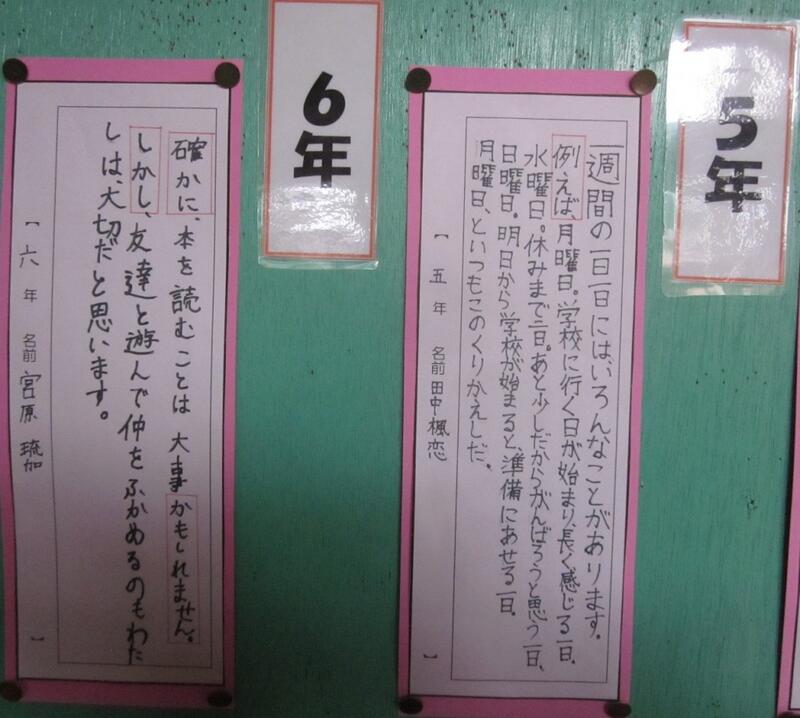 5年
一週間の一日一日には、いろんなことがあります。
例えば、月曜日。学校に行く日が始まり、長く感じる一日。
水曜日。休みまで二日。あと少しだからがんばろうと思う一日、
日曜日。明日から学校が始まると、準備にあせる一日。
月曜日、といつもこのくりかえしだ。
【 五 年 名前 田中楓恋 】
6年
確かに、本を読むことは大事かもしれません。
しかし、友達と遊んで仲をふかめるのもわた
しは、大切だと思います。
【 六 年 名前 宮原 琉加 】